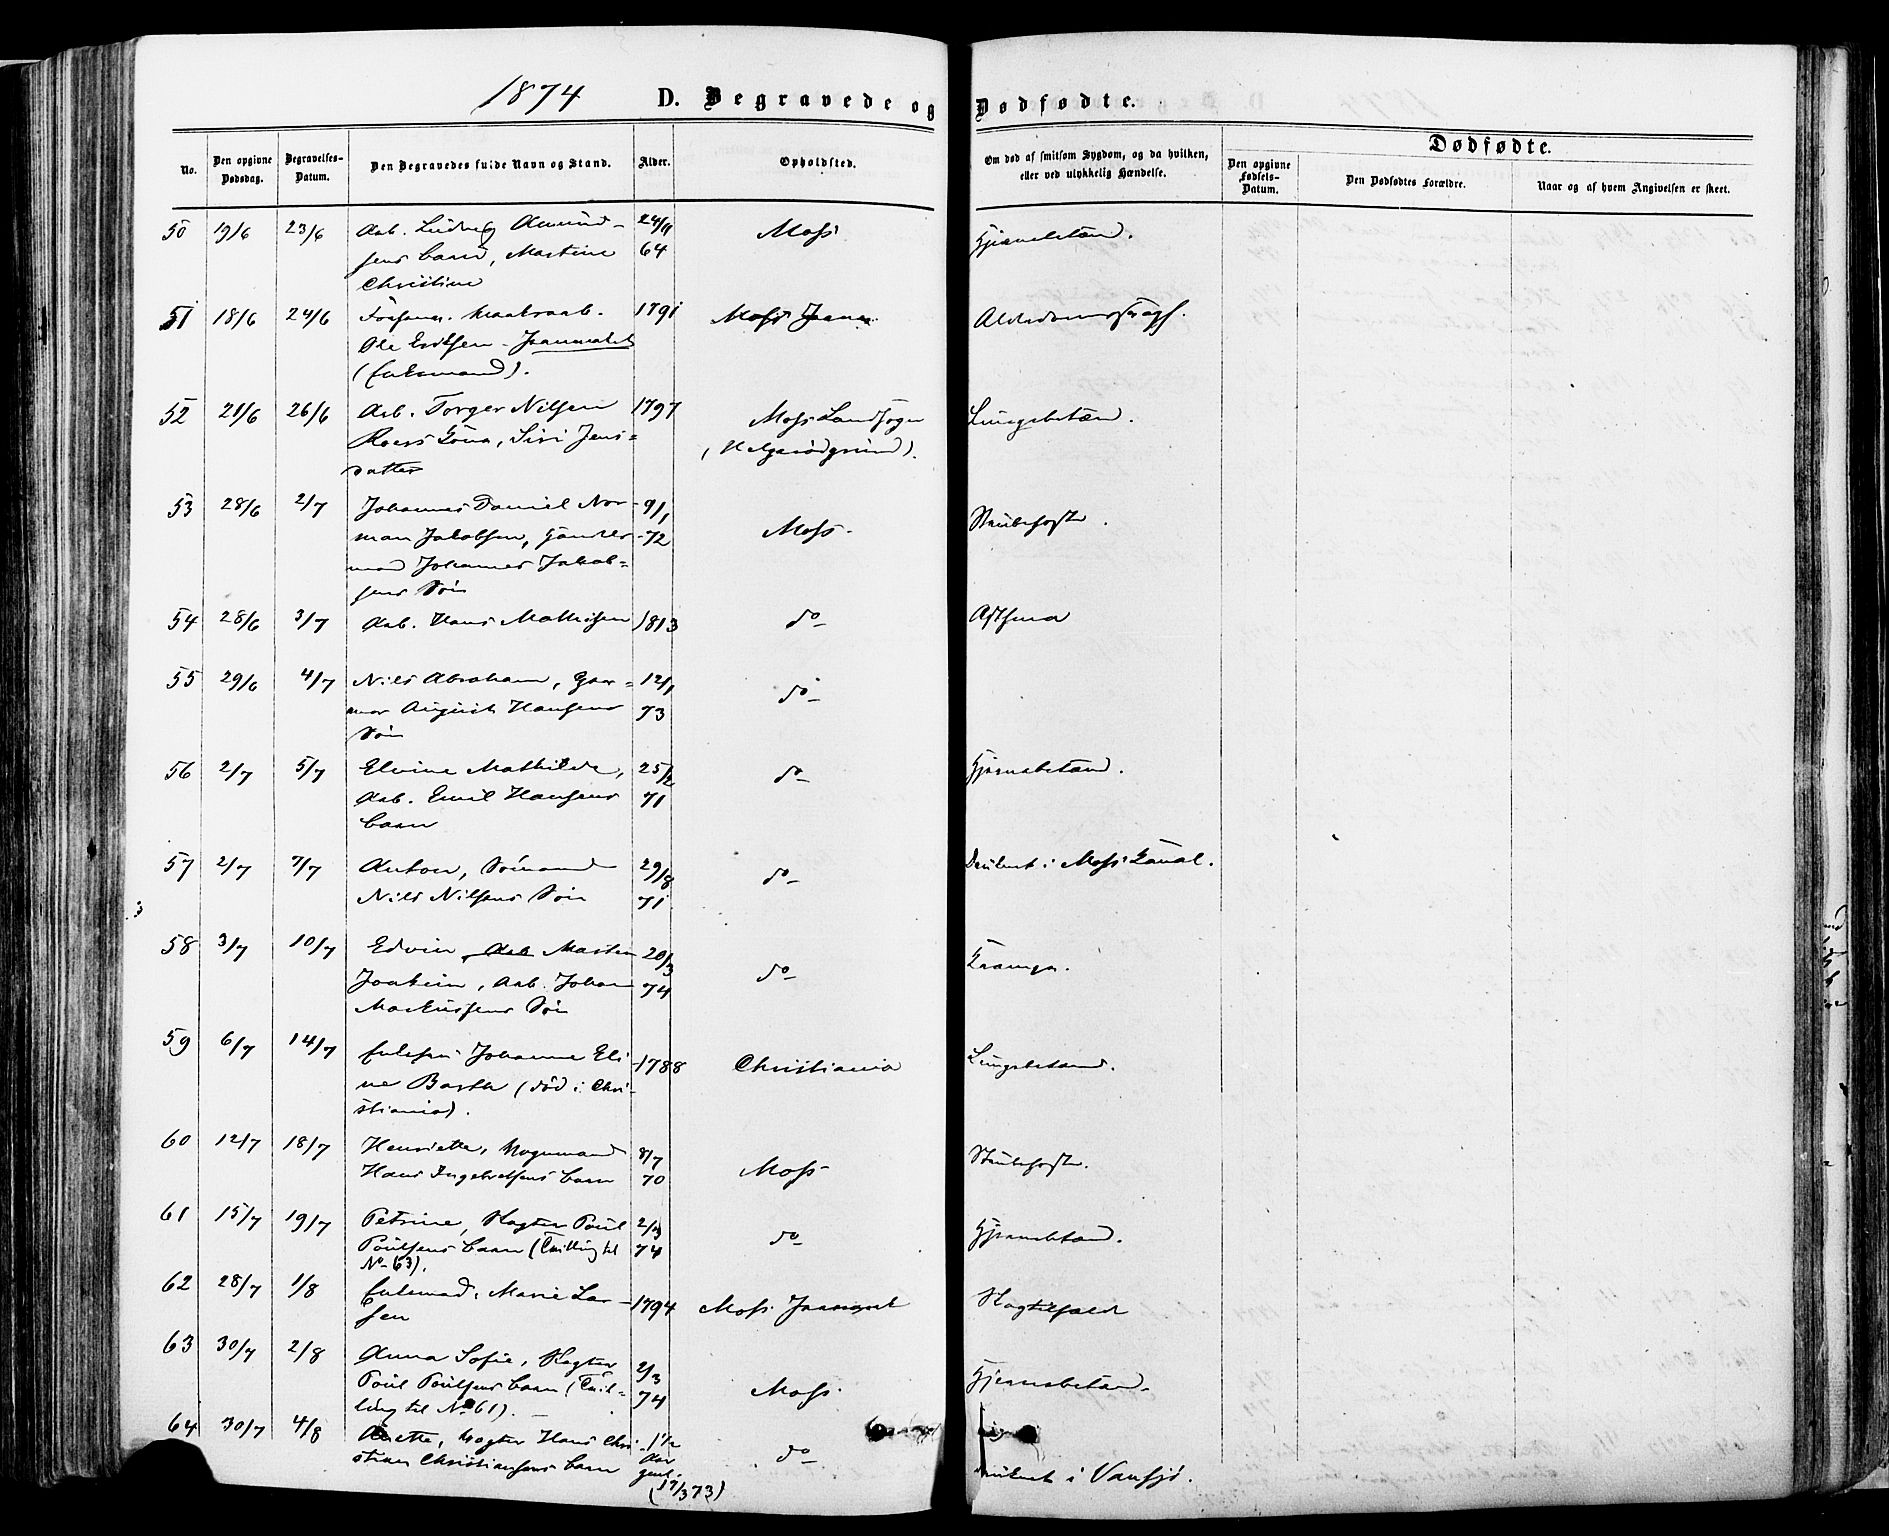 1874 D. Begravede og Dødfødte.
No.
Den opgivne Dødsdag.
Begravelses-Datum.
Den Begravedes fulde Navn og Stand.
Alder.
Opholdsted.
Om død af smitsom Sygdom, og da hvilken, eller ved ulykkelig Hændelse.
Dødfødte.
Den opgivne Fødsels-Datum.
Den Dødfødtes Forældre.
Naar og af hvem Angivelsen er skeet.
50 19/6 23/6 Arb. Ludvig Amund- 24/9 Moss Hjernebetænd.
sens barn, Martine 64
Christine
51 18/6 24/6 Ole Eriksen 1791 Moss Alderdomssvagh.
(Enkemand).
52 21/6 26/6 Arb. Torger Nilsen 1797 Moss Landsogn Lungebetæn.
Roers Kone, Siri Jens- (Helgerødgrund).
datter
53 28/6 2/7 Johannes Daniel Nor- 9/1 Moss Strubehoste.
man Jakobsen, Handels- 72
mand Johannes Jakob-
sens Søn
54 28/6 3/7 Arb. Hans Mathisen 1813 do Asthma
55 29/6 4/7 Nils Abraham, Gar- 12/1 do
ver August Hansens 73
Søn
56 2/7 5/7 Elvine Mathilde, 25/2 do Hjernebetænd.
Arb. Emil Hansens 71
barn
57 2/7 7/7 Anton, Sömand 29/8 do Druknet i Moss Kanal.
Nils Nilsens Søn 71
58 3/7 10/7 Edvin, Arb Martin 20/3 do Krampe.
Joakim, Arb. Johan 74
Markussens Søn
59 6/7 14/7 Enkefru Johanne Eli- 1788 Christiania Lungebetænd.
ne Barth (død i Chri-
stiania).
60 12/7 18/7 Henriette, Vognmand 8/7 Moss Strubehoste.
Hans Ingebretsens barn 70
61 15/7 19/7 Petrine, Slagter Poul 2/3 do Hjernebetænd.
Poulsens barn (Tvilling til 74
No 63).
62 28/7 1/8 Marie Lar- 1794 Moss Slagtilfælde
sen
63 30/7 2/8 Anna Sofie, Slagter 2/3 Moss Hjernebetænd.
Poul Poulsens barn (Tvil- 74
ling til No 61).
64 30/7 4/8 Hans Chri- 1 1/2 do Druknet i Vansjø.
stian Christiansens barn Aar
gml.
(17/3 73)